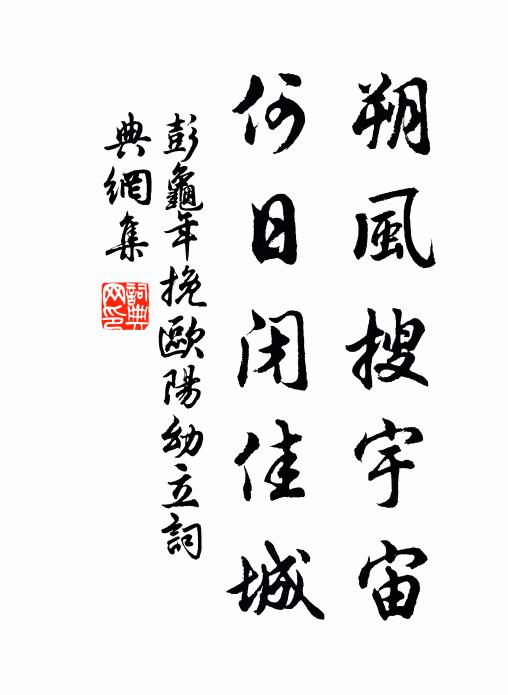 朔風搜宇宙
何日闭佳城
彭龜年挽歐陽幼立詞
典網集
詞典
网印